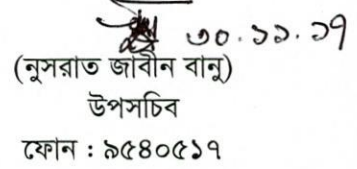 ৩০.১১.১৭
(নুসরাত জাবীন বানু)
উপসচিব
ফোন : ৯৫৪০৫১৭